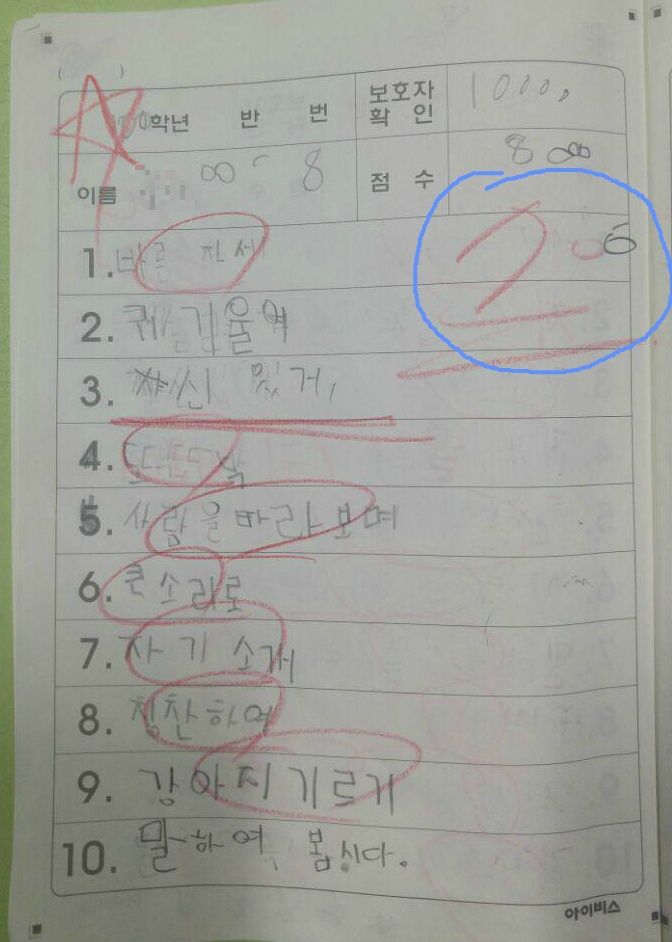 ( )
학년 반 번 보호자 확인 1000,
이름 8 점수 8
1. 바른 자세
2. 귀 기울여
3. 자신 있거,
4. 또또또박
5. 사람을 바라보며
6. 큰소리로
7. 자기 소개
8. 칭찬하여
9. 강아지 기르기
10. 말하여 봅시다.
아이비스